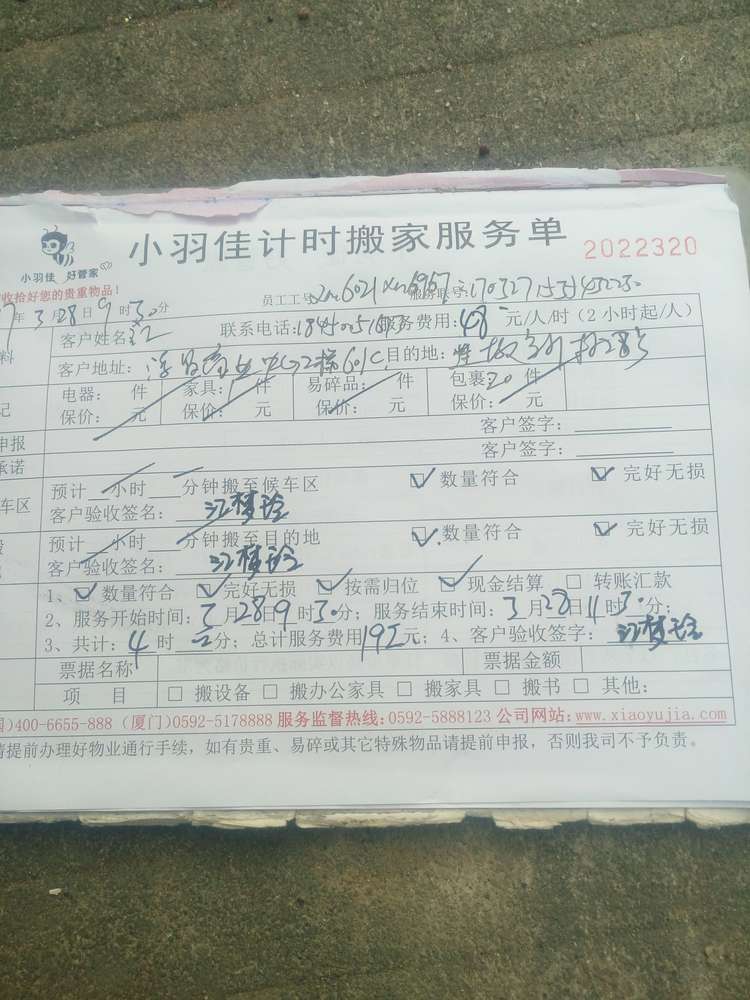 小羽佳计时搬家服务单 2022320
小羽佳 好管家
收拾好您的贵重物品！
员工工号
年3月28日9时30分
客户姓名 江 联系电话: 服务费用:48元/人/时（2小时起/人）
客户地址: 2栋601C 目的地:
电器: 件 家具: 件 易碎品: 件 包裹20件
保价: 元 保价: 元 保价: 元 保价: 元
申报 客户签字:
承诺 客户签字:
预计 小时 分钟搬至候车区 数量符合 完好无损
车区 客户验收签名: 江梦玲
预计 小时 分钟搬至目的地 数量符合 完好无损
客户验收签名: 江梦玲
1、数量符合 完好无损 按需归位 现金结算 转账汇款
2、服务开始时间:3月28日9时30分; 服务结束时间:3月28日11时30分;
3、共计:4时 分; 总计服务费用192元; 4、客户验收签字: 江梦玲
票据名称 票据金额
项 目 搬设备 搬办公家具 搬家具 搬书 其他:
国)400-6655-888（厦门)0592-5178888 服务监督热线:0592-5888123 公司网站:www.xiaoyujia.com
请提前办理好物业通行手续，如有贵重、易碎或其它特殊物品请提前申报，否则我司不予负责。